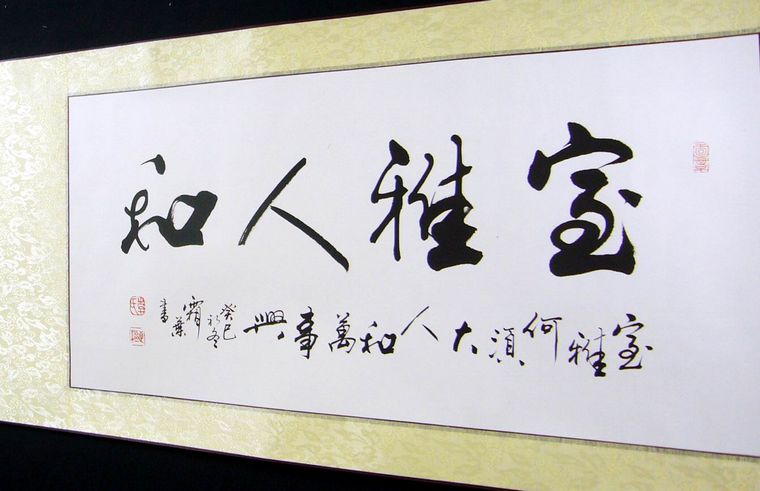 室雅人和
室雅何須大人和萬事興
癸巳初冬
霜葉
書